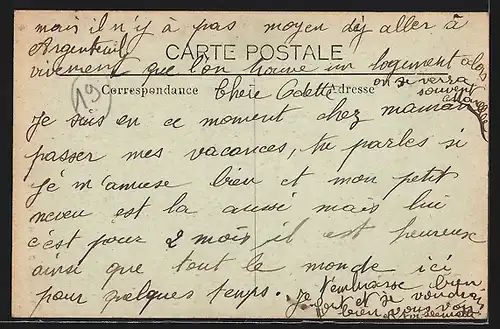 mais il n'y à pas moyen d'y aller à
Argenteuil
CARTE POSTALE
vivement que l'on trouve un logement alors
on se verra
souvent
19
Correspondance
Adresse
Chère Odette
Je suis en ce moment chez maman
passer mes vacances, tu parles si
je m'amuse bien et mon petit
neveu est la aussi mais lui
c'est pour 2 mois il est heureux
ainsi que tout le monde ici
pour quelques temps. Je t'embrasse bien
fort et je voudrais
bien vous voir